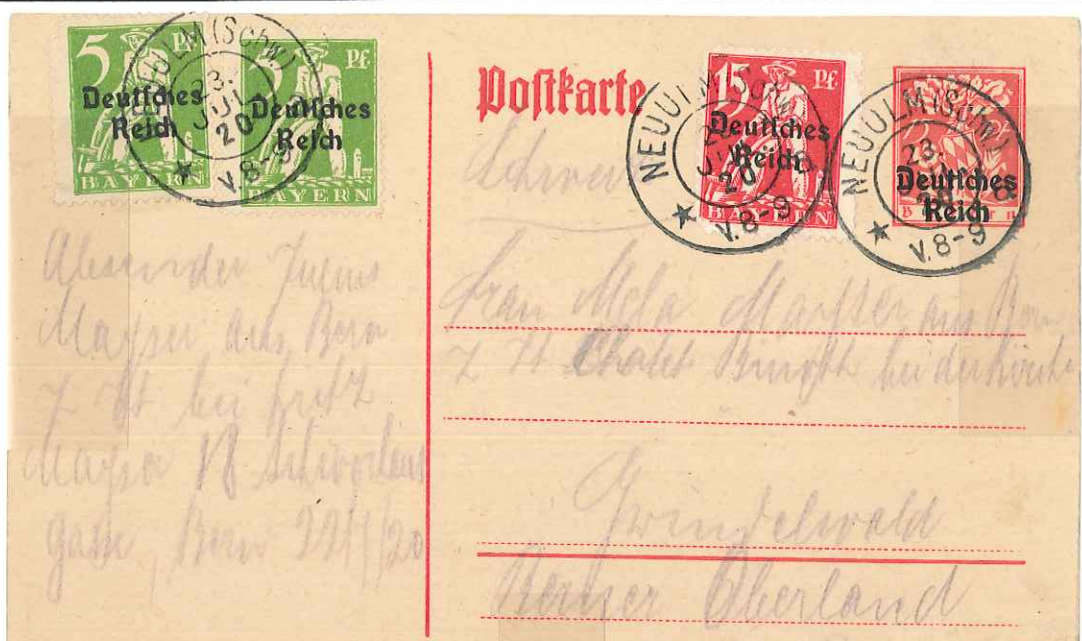 5 Pf
Deutsches
Reich
BAYERN
5 Pf
Deutsches
Reich
BAYERN
NEUULM (Schw.)
23.
JUL
20
V.8-9
Postkarte
15 Pf
Deutsches
Reich
BAYERN
NEUULM (Schw.)
20
V.8-9
Deutsches
Reich
Bayern
NEUULM (Schw.)
23.
20
V.8-9
Absender
Mayser aus Bern
z Zt bei Fritz
Mayser 18
gasse, Bern 22/7/20
Frau Mela Mayser aus Bern
z Zt Chalet bei der Kirche
Grindelwald
Berner Oberland